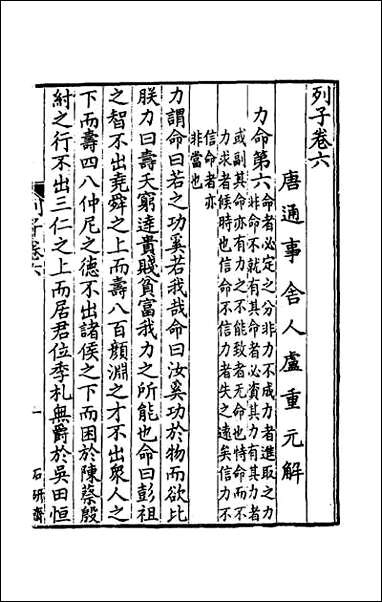 列子卷六
唐通事舍人盧重元解
力命第六
命者必定之分非力不成力者進取之力
非命不就有其命者必資其力有其力者
或副其命亦有力之不能致者无命也恃命而不
力求者候時也信命不信力者失之遠矣信力不
信命者亦
非當也
力謂命曰若之功奚若我哉命曰汝奚功於物而欲比
朕力曰壽夭窮達貴賤貧富我力之所能也命曰彭祖
之智不出堯舜之上而壽八百顏淵之才不出眾人之
下而壽四八仲尼之德不出諸侯之下而困於陳蔡殷
紂之行不出三仁之上而居君位季札無爵於吳田恒
列子卷六
一
石研齋